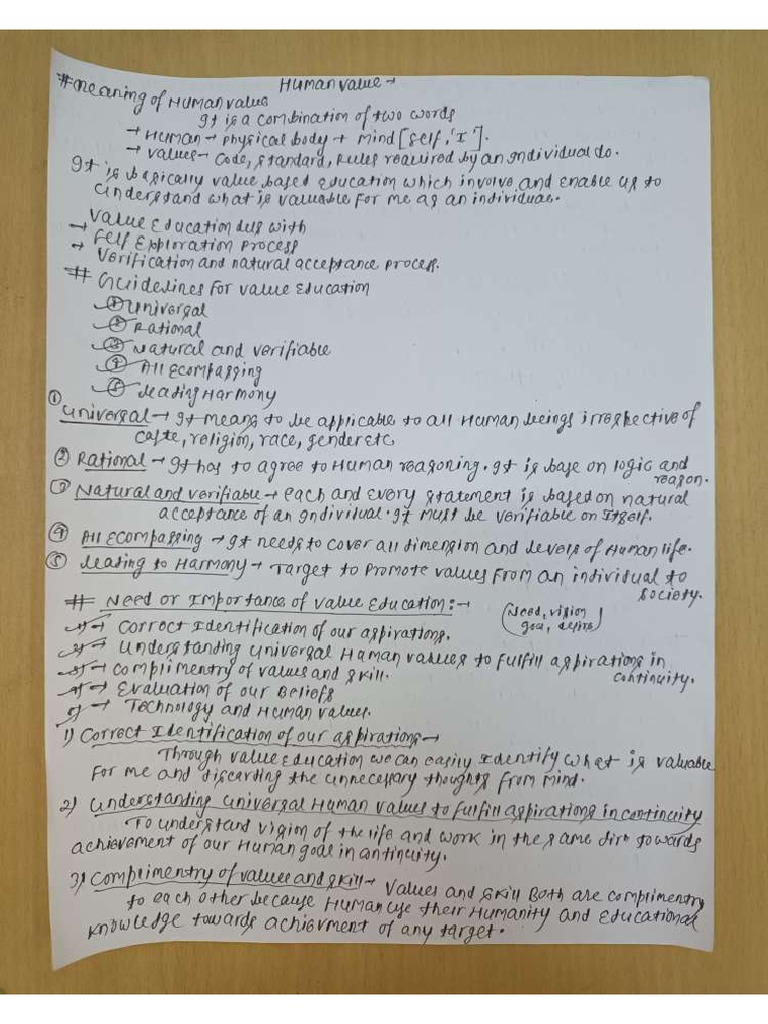 Human value →
# Meaning of Human value
It is a combination of two words
→ Human → physical body + mind [self, 'I'].
→ values → Code, standard, Rules required by an individual do.
It is basically value based education which involve and enable us to
understand what is valuable for me as an individual.
→ value Education dels with
→ self Exploration process
verification and natural acceptance process.
# Guidelines for value Education
① Universal
② Rational
③ Natural and verifiable
④ All Ecompassing
⑤ leading Harmony
① Universal → It means to be applicable to all Human beings irrespective of
caste, religion, race, gender etc
② Rational → It has to agree to Human reasoning. It is base on logic and
reason.
③ Natural and verifiable → each and every statement is based on natural
acceptance of an Individual. It must be verifiable on Itself.
④ All Ecompassing → It needs to cover all dimension and levels of Human life.
⑤ leading to Harmony → Target to promote values from an individual to
society.
# Need or Importance of value Education:→ (Need, vision
goal, desire)
1) → Correct Identification of our aspirations.
2) → Understanding Universal Human values to fulfill aspirations in
continuity.
3) → Complimentry of values and skill.
4) → Evaluation of our Beliefs
5) → Technology and Human values.
1) Correct Identification of our aspirations →
Through value Education we can easily Identify what is valuable
for me and discarding the unnecessary thoughts from mind.
2) Understanding universal Human values to fulfill aspirations in continuity
To understand vision of the life and work in the same dirn towards
achievement of our Human goal in antinuity.
3) Complimentry of value and skill → values and skill Both are complimentry
to each other because Human use their Humanity and Educational
knowledge towards achievment of any target.